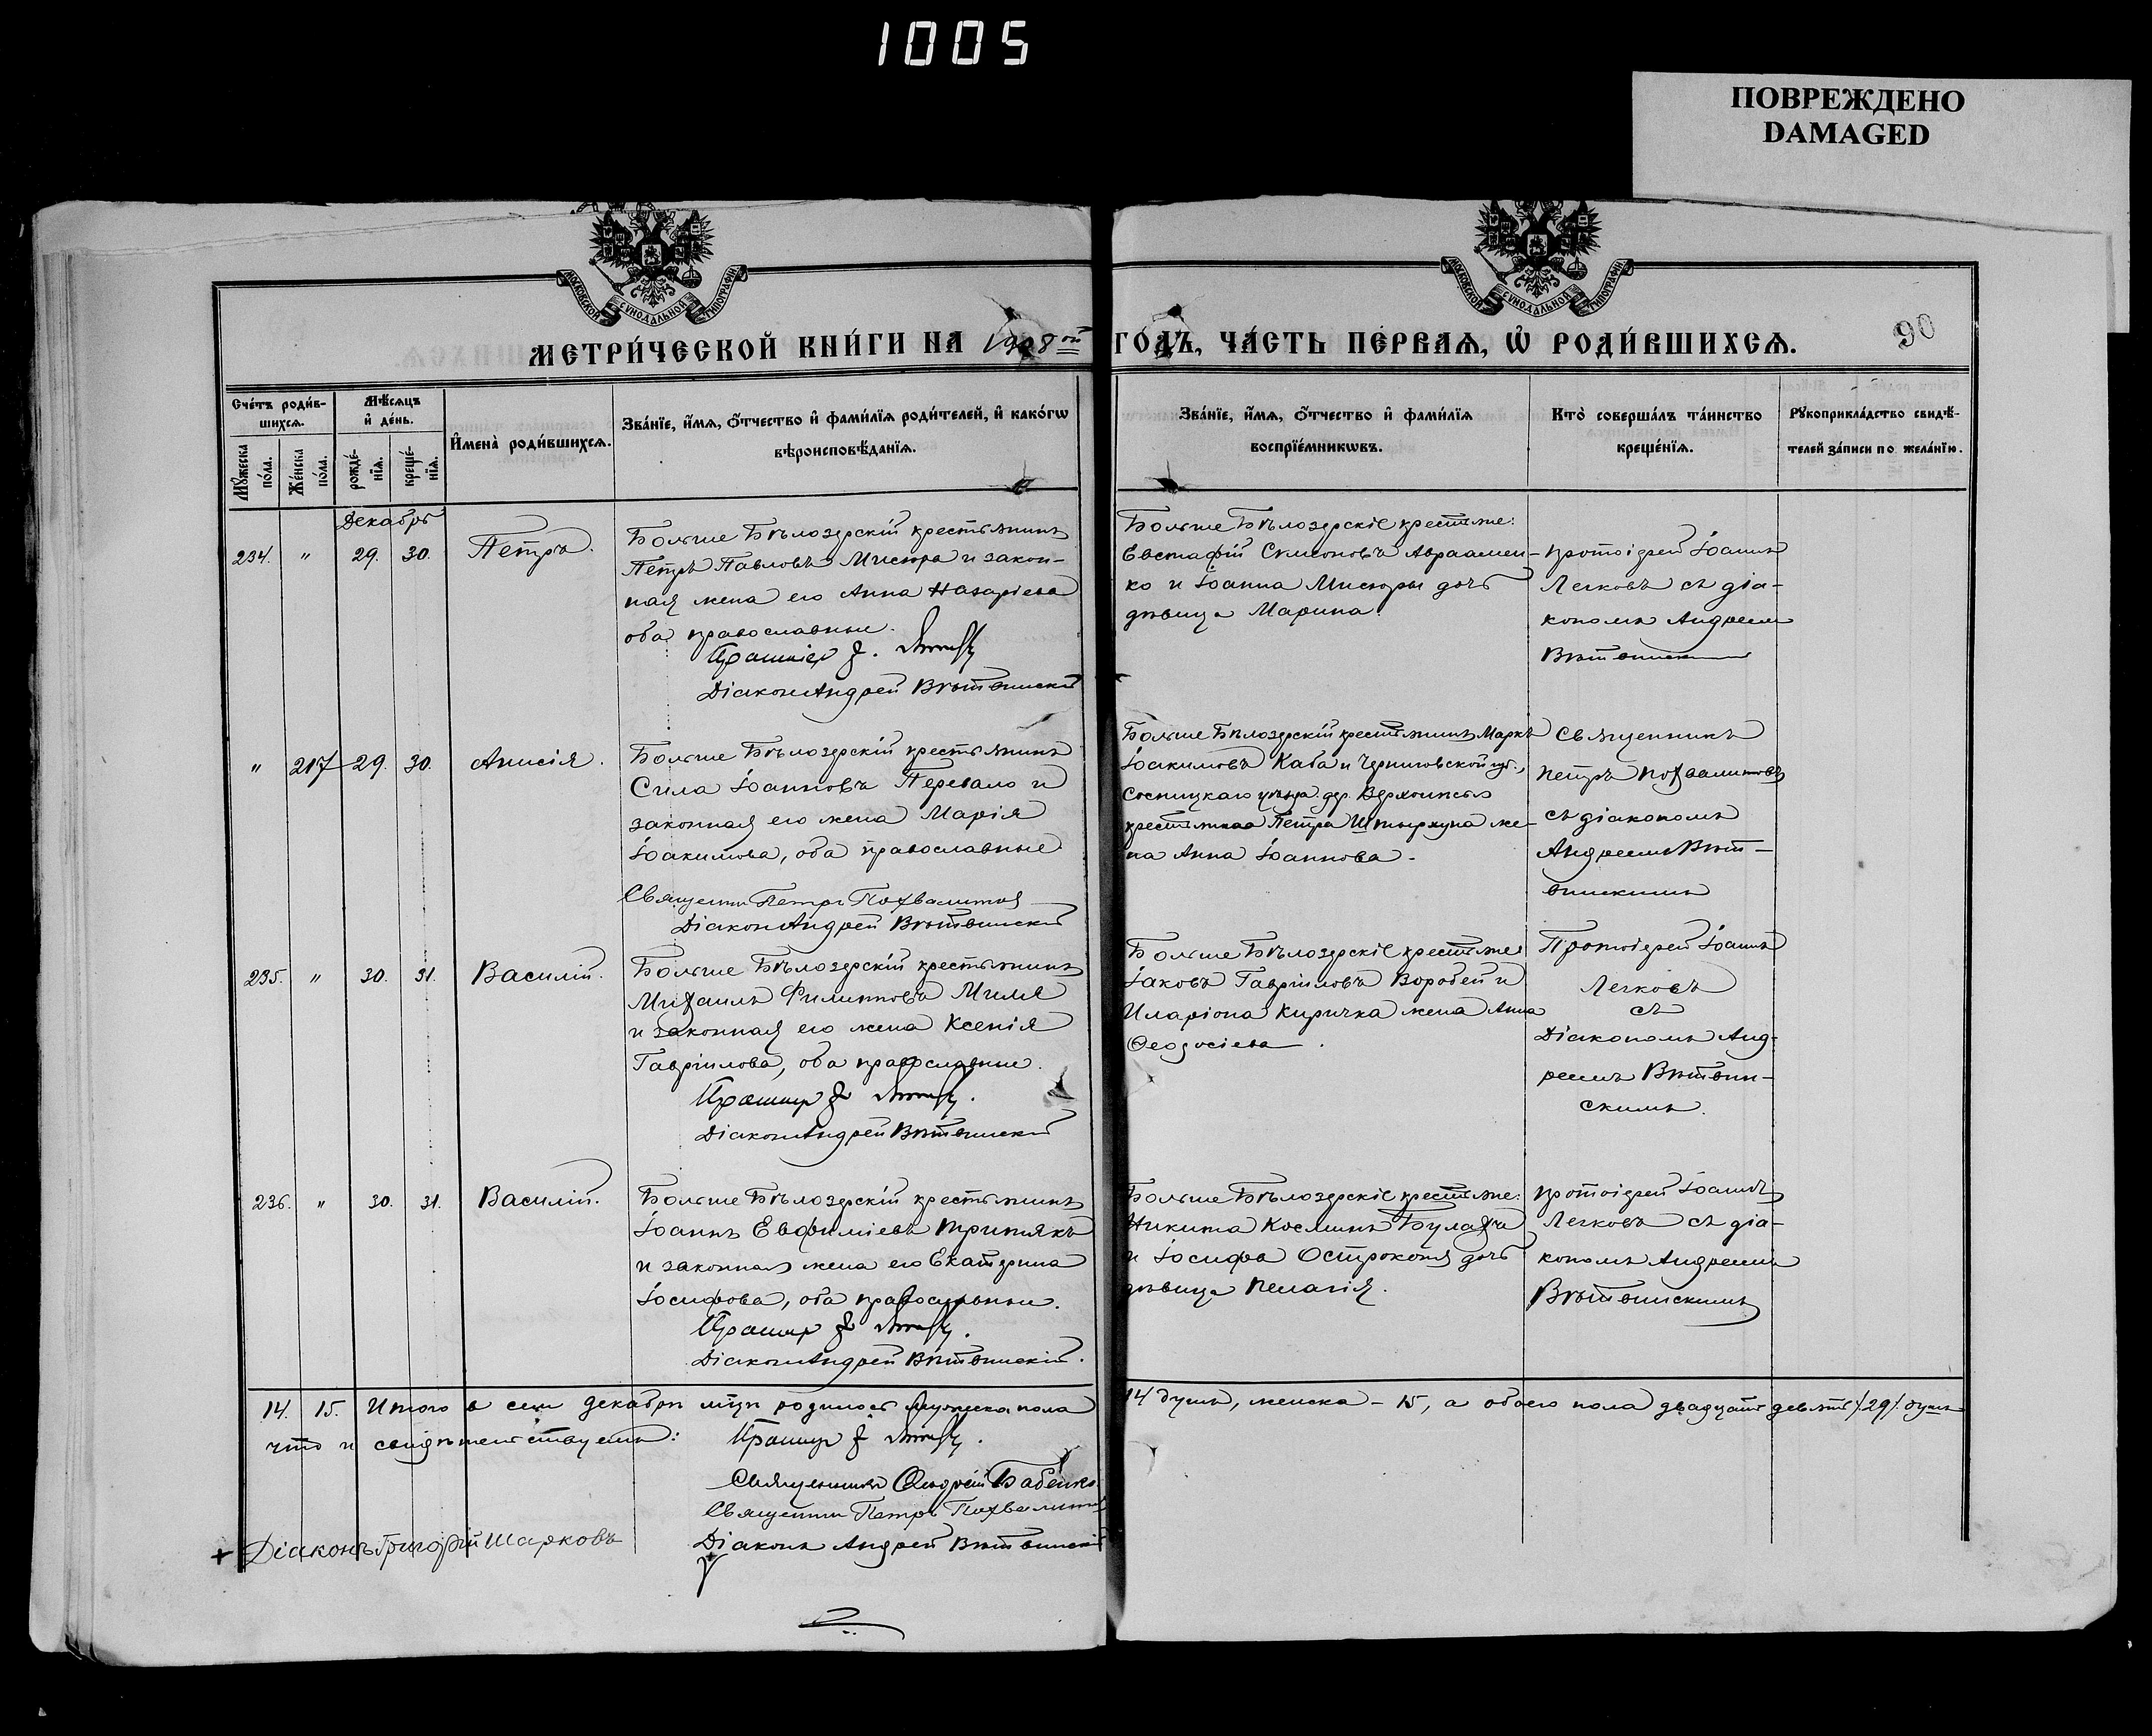 1005
ПОВРЕЖДЕНО
DAMAGED
МОСКОВСКОЙ СѴНОДАЛЬНОЙ ТИПОГРАФІИ
МОСКОВСКОЙ СѴНОДАЛЬНОЙ ТИПОГРАФІИ
МЕТРИ́ЧЕСКОЙ КНИ́ГИ НА 1908ой ГОДЪ, ЧА́СТЬ ПЕ́РВАѦ, Ѡ РОДИ́ВШИХСѦ.
90
Сче́тъ роди́в-
шихсѧ.
Мꙋжеска по́ла.
Же́нска по́ла.
Мѣ́сѧцъ
и҆ де́нь.
рожде́-
нїѧ.
креще́-
нїѧ.
И҆мена̀ роди́вшихсѧ.
Зва́нїе, и҆́мѧ, ѻ҆́тчество и҆ фами́лїѧ роди́телей, и҆ како́гѡ
вѣроисповѣ́данїѧ.
Зва́нїе, и҆́мѧ, ѻ҆́тчество и҆ фами́лїѧ
воспрїе́мникѡвъ.
Кто̀ соверша́лъ та́инство
креще́нїѧ.
Рꙋкоприкла́дство свидѣ́-
телей за́писи по жела́нїю.
Декабрь
234. " 29. 30. Петръ.
Больше Бѣлозерскій крестьянинъ
Петръ Павловъ Мисюра и закон-
ная жена его Анна Назаріева
оба православные.
Діаконъ Андрей Вѣтвинскій
Больше Бѣлозерскіе крестьяне:
Евстафій Симеоновъ Авраамен-
ко и Іоанна Мисюры дочь
дѣвица Марина.
протоіерей Іоаннъ
Легковъ съ діа-
кономъ Андреемъ
Вѣтвинскимъ
" 217 29. 30. Анисія.
Больше Бѣлозерскій крестьянинъ
Сила Іоанновъ Перевало и
законная его жена Марія
Іоакимова, оба православные
Священникъ Петръ Похвалитовъ
Діаконъ Андрей Вѣтвинскій
Больше Бѣлозерскій крестьянинъ Маркъ
Іоакимовъ Каба и Черниговской губ.,
Сосницкаго уѣзда дер.
крестьянина Петра же-
на Анна Іоаннова.
Священникъ
Петръ Похвалитовъ
съ діакономъ
Андреемъ Вѣт-
винскимъ
235. " 30. 31. Василій.
Больше Бѣлозерскій крестьянинъ
Михаилъ Филипповъ
и законная его жена Ксенія
Гавріилова, оба православные.
Діаконъ Андрей Вѣтвинскій
Больше Бѣлозерскіе крестьяне
Іаковъ Гавріиловъ Воробей и
Иларіона Киричка жена Анна
Ѳеодосіева.
Протоіерей Іоаннъ
Легковъ
съ
Діакономъ Анд-
реемъ Вѣтвин-
скимъ.
236. " 30. 31. Василій.
Больше Бѣлозерскій крестьянинъ
Іоаннъ Евфиміевъ Трипякъ
и законная жена его Екатерина
Іосифова, оба православные.
Діаконъ Андрей Вѣтвинскій.
Больше Бѣлозерскіе крестьяне:
Никита Косминъ Булаха
и Іосифа Острокотя дочь
дѣвица Пелагія.
протоіерей Іоаннъ
Легковъ съ діа-
кономъ Андреемъ
Вѣтвинскимъ
14. 15. Итого в сем декабрѣ мцѣ родилось мужска пола 14 душъ, женска - 15, а обоего пола двадцать девять /29/ душъ
что и свидѣтельствуемъ:
Священникъ Андрей Бабенко
Священникъ Петръ Похвалитовъ
Діаконъ Григорій Шарковъ
Діаконъ Андрей Вѣтвинскій